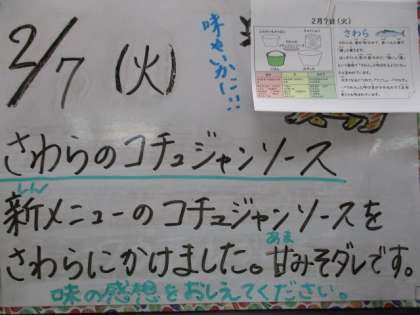 2/7(火)
味やいかに!!
2月7日(火)
さわら
さわらのコチュジャンソース
しん
新メニューのコチュジャンソースを
あま
さわらにかけました。甘みそダレです。
味の感想をおしえてください。